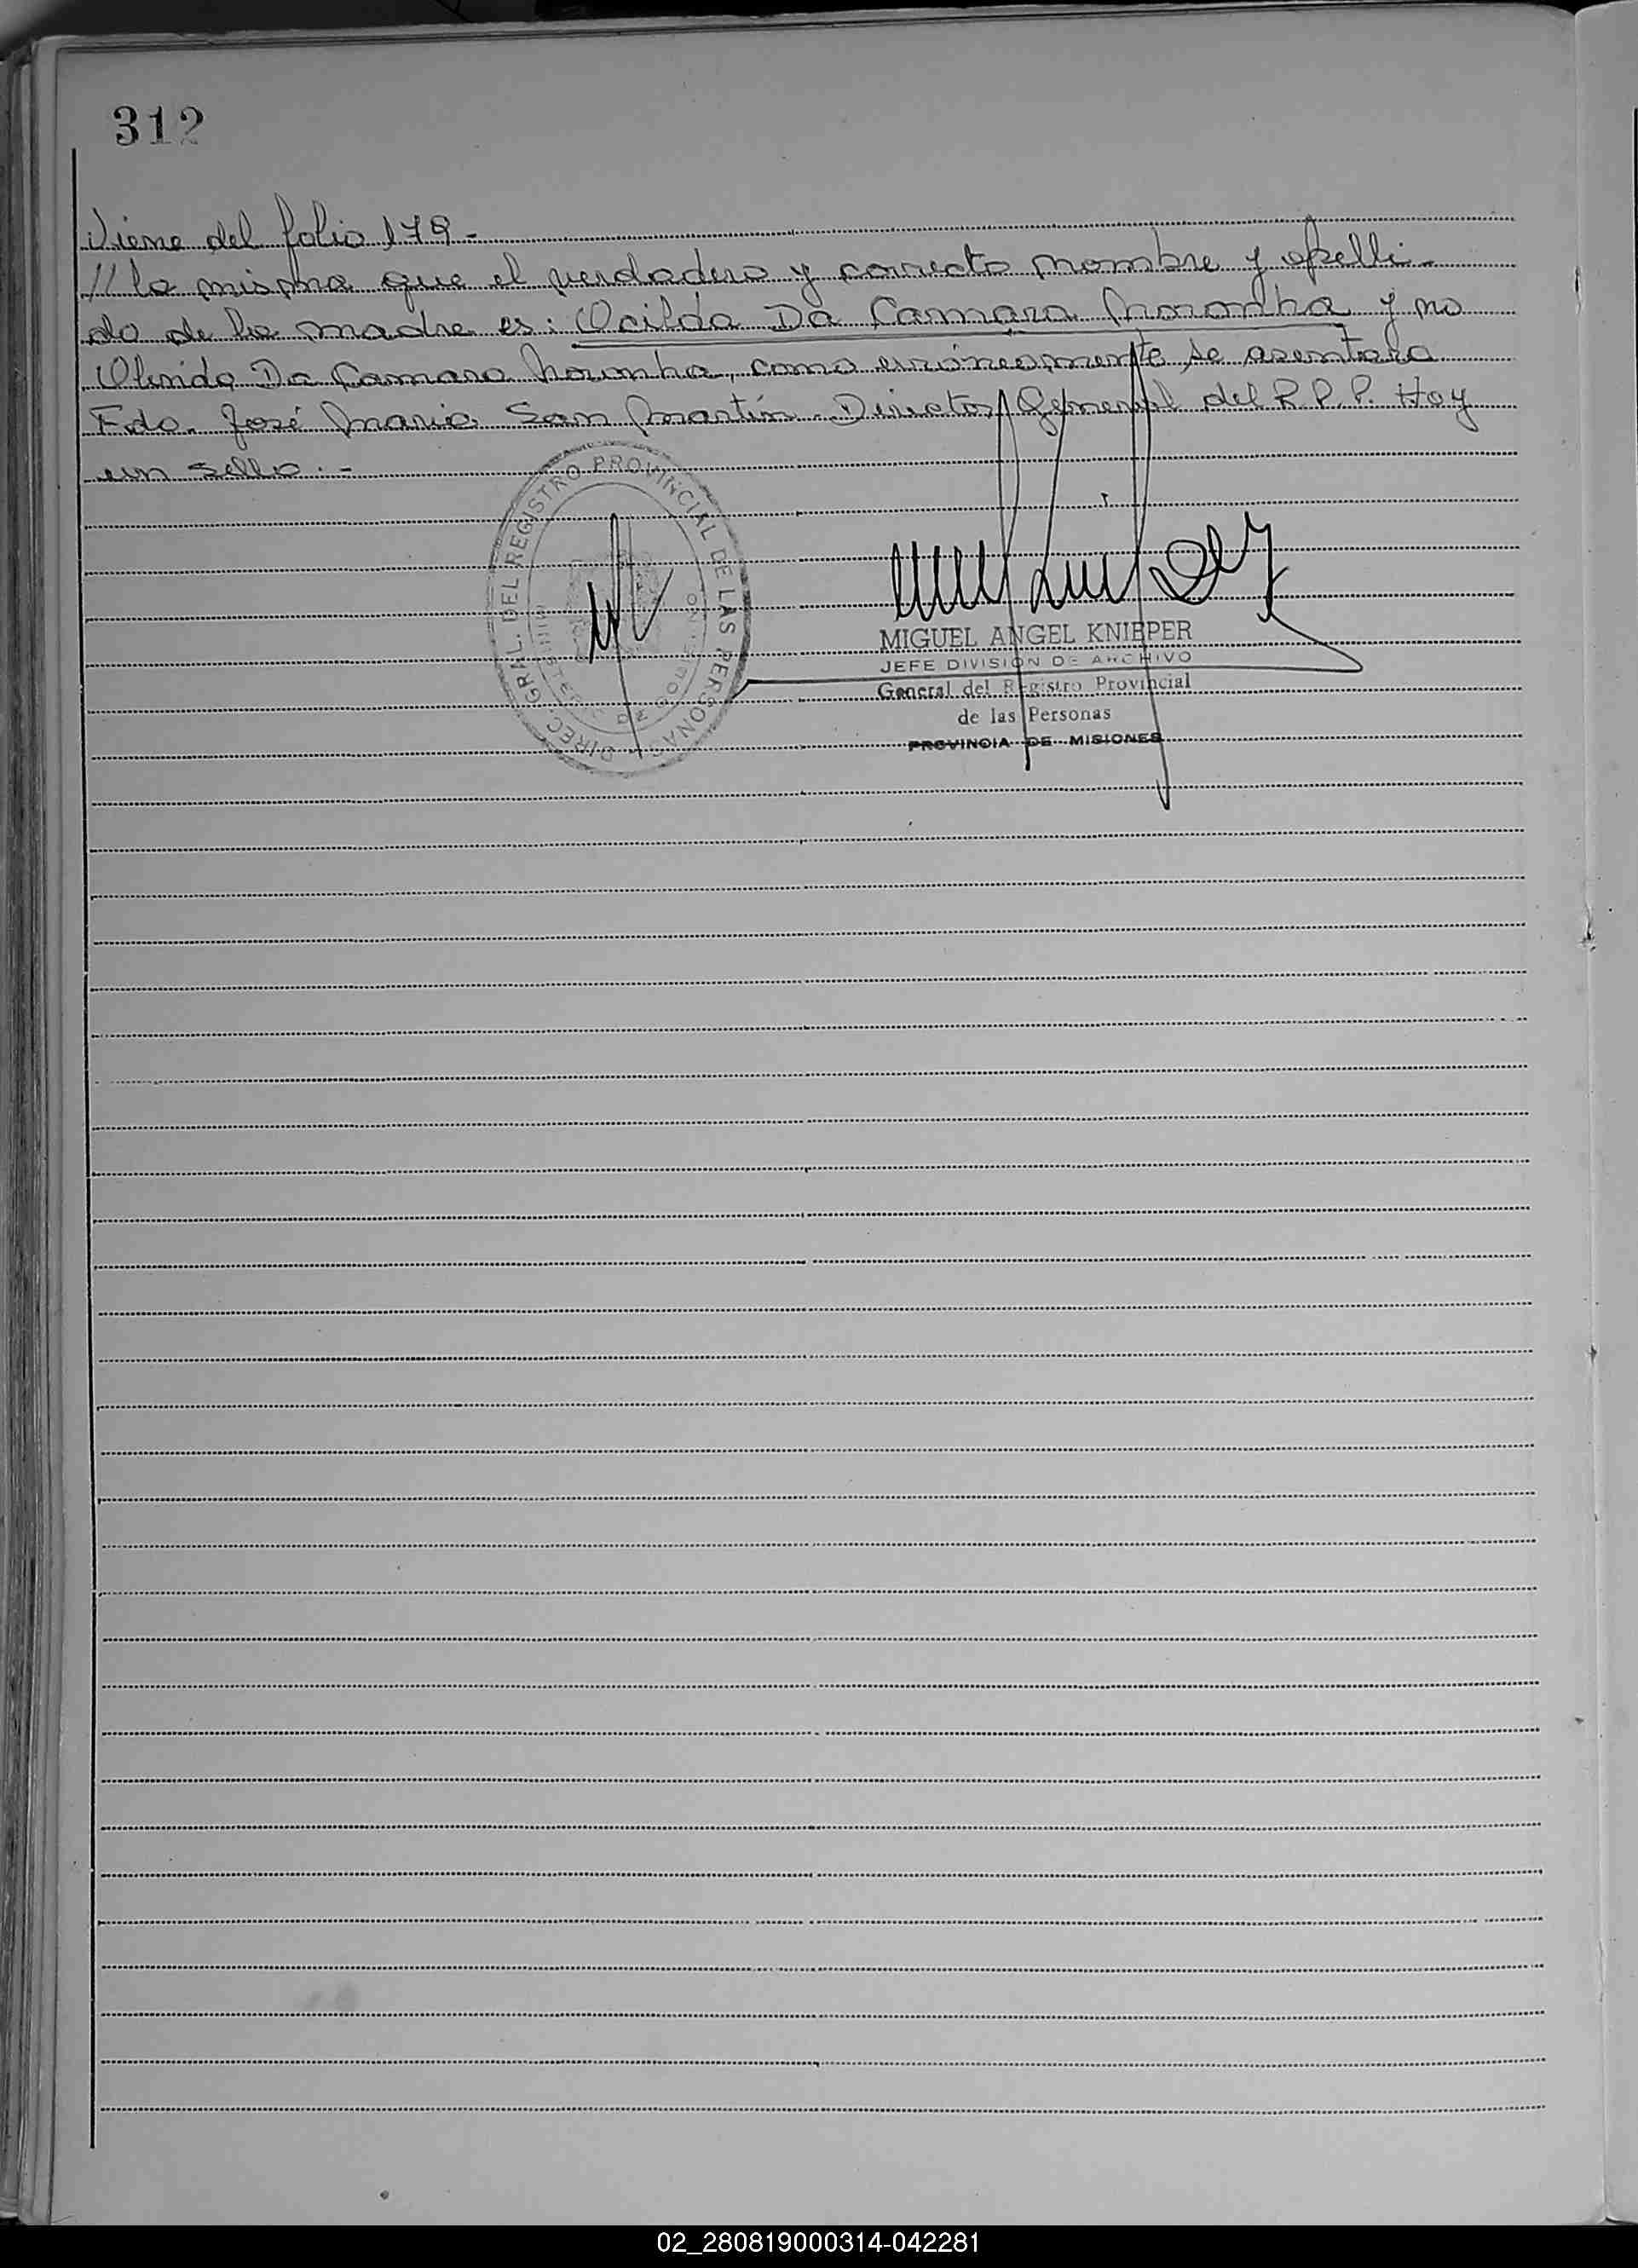 312
Viene del folio 179.-
//la misma que el verdadero y correcto nombre y apelli-
do de la madre es: Ocilda Da Camara Noronha y no
Olinda Da Camara Noronha, como erróneamente se asentara
Fdo. José Maria San Martín. Director General del R.P.P. Hay
un sello.-
DIREC. GRAL. DEL REGISTRO PROVINCIAL DE LAS PERSONAS
MINISTERIO DE GOBIERNO
MIGUEL ANGEL KNIEPER
JEFE DIVISION DE ARCHIVO
General del Registro Provincial
de las Personas
PROVINCIA DE MISIONES
02_280819000314-042281